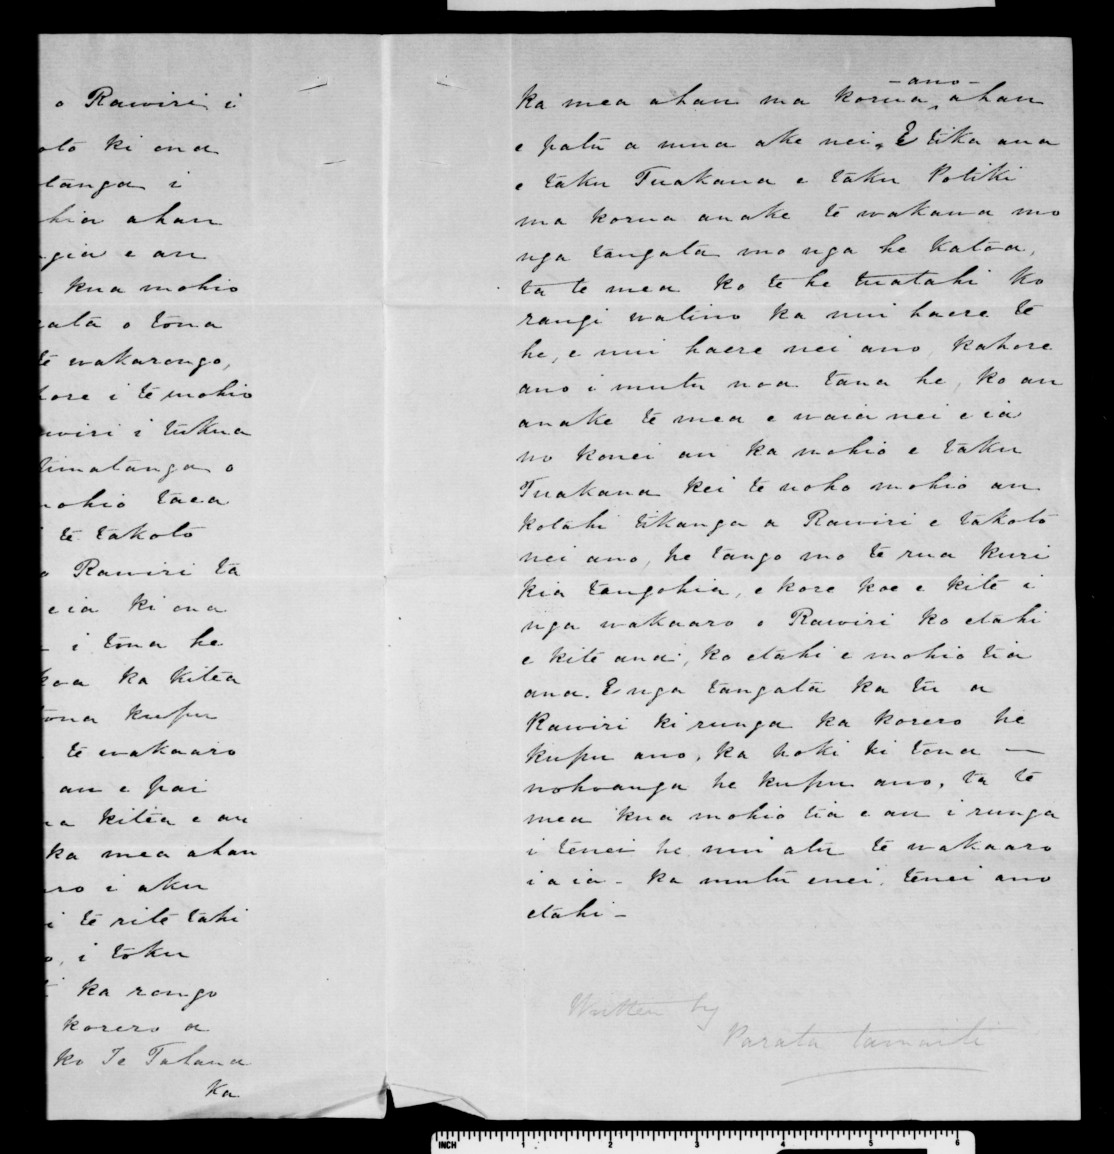 o Rawiri i
oto ki ona
tanga i
hia ahau
gia e au
kua mohio
ata o tona
te wakarongo,
hore i te mohio
wiri i tukua
timatanga o
mohio taea
te takoto
o Rawiri ta
e ia ki ona
i tona he
koa ka kitea
tona kupu
te wakaaro
au e pai
na kitea e au
ka mea ahau
aro i aku
i te rite tahi
o, i toku
ka rongo
korero a
ko Te Tahana
Ka
ka mea ahau ma korua -ano- ahau
e patu a mua ake nei. E tika ana
e taku Tuakana e taku Potiki
ma korua anake te wakawa mo
nga tangata mo nga he katoa,
ta te mea ko te he tuatahi ko
rangi watino ka nui haere te
he, e nui haere nei ano, kahore
ano i mutu noa tana he, ko au
anake te mea e waia nei e ia
no konei au ka mohio e taku
Tuakana kei te noho mohio au
kotahi tikanga a Rawiri e takoto
nei ano, he tango mo te rua kuri
kia tangohia, e kore koe e kite i
nga wakaaro o Rawiri ko etahi
e kite ana, ko etahi e mohio tia
ana. E nga tangata ka tu a
Rawiri ki runga ka korero he
kupu ano, ka hoki ki tona —
nohoanga he kupu ano, ta te
mea kua mohio tia e au i runga
i tenei he nui atu te wakaaro
i a ia - ka mutu enei, tenei ano
etahi -
Written by
Parata